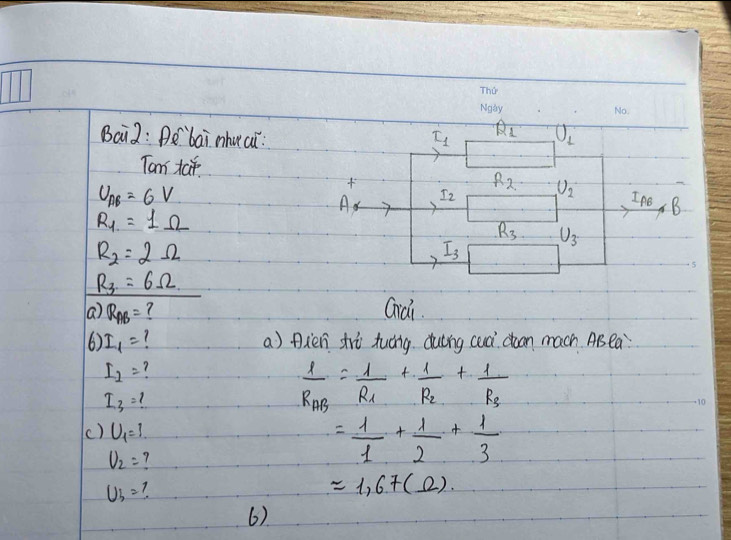 Thứ
Ngày No
Bài 2: Đề bài như cũ:
Tóm tắt.
U_AB = 6 V
R₁ = 1 Ω
R₂ = 2 Ω
R₃ = 6 Ω.
a) R_AB = ?
b) I₁ = ?
I₂ = ?
I₃ = ?
c) U₁ = ?
U₂ = ?
U₃ = ?
I₁ R₁ U₁
+ A I₂ R₂ U₂ I_AB B -
I₃ R₃ U₃
Giải.
a) Điện trở tương đương của đoạn mạch AB là:
1/R_AB = 1/R₁ + 1/R₂ + 1/R₃
= 1/1 + 1/2 + 1/3
≈ 1,67 (Ω).
b)
5
10